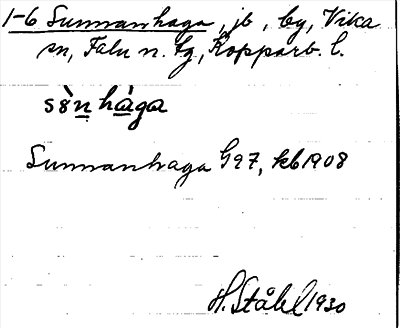 1-6 Sunnanhaga, jb, by, Vika
sn, Falu n. tg, Kopparb. l.
sə̀n hàga
Sunnanhaga G97, kb 1908
H. Ståhl 1930